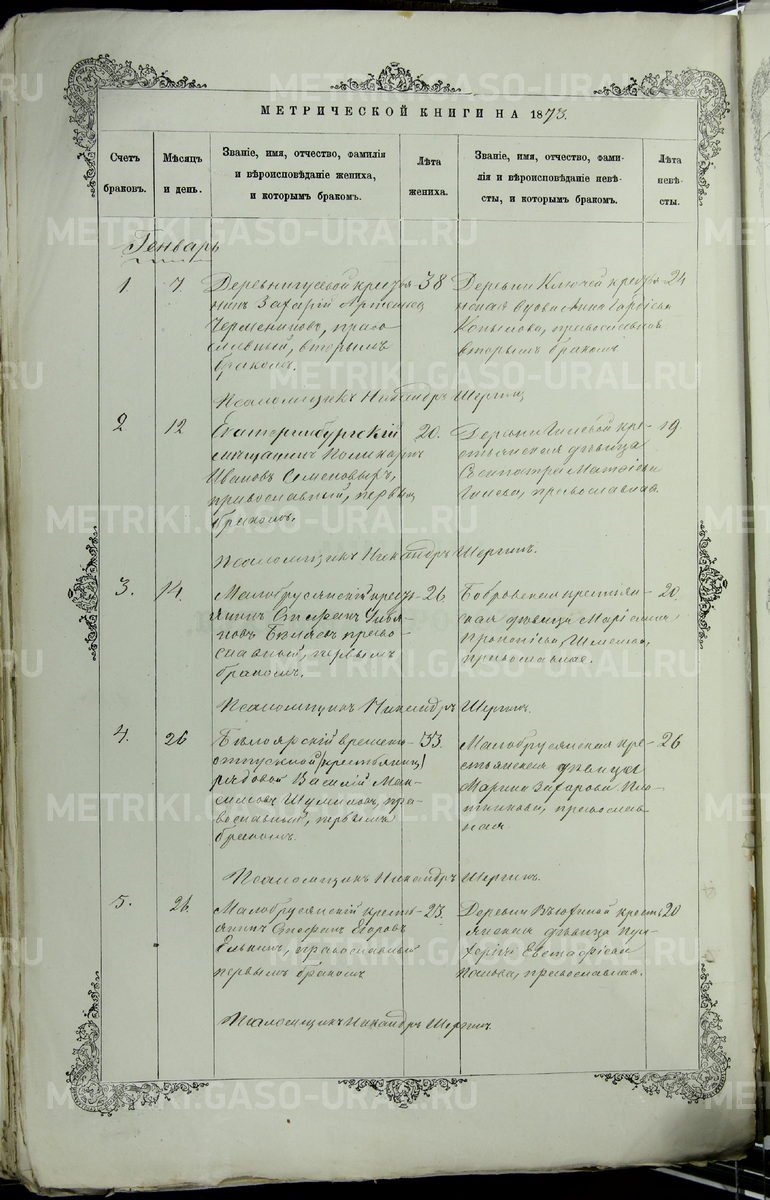 МЕТРИЧЕСКОЙ КНИГИ НА 1873.
Счетъ браковъ.
Мѣсяцъ и день.
Званіе, имя, отчество, фамилія
и вѣроисповѣданіе жениха,
и которымъ бракомъ.
Лѣта жениха.
Званіе, имя, отчество, фами-
лія и вѣроисповѣданіе невѣ-
сты, и которымъ бракомъ.
Лѣта невѣ-
сты.
Генварь
1 7
38
24
нинъ Захарій
православный, вторымъ
бракомъ.
Деревни Ключей
вдова Анна
Копылова, православная
вторымъ бракомъ
Псаломщикъ Никандръ Шергин
2 12
Екатеринбургскій
мѣщанинъ Поликарпъ
Ивановъ Семеновыхъ,
православный, первымъ
бракомъ.
20.
Деревни Гилевой кре-
стьянская дѣвица
Гилева, православная
19
Псаломщикъ Никандръ Шергинъ.
3. 14.
Малобрусянскій крест
янинъ Стефанъ
православный, первымъ
бракомъ.
26
Бобровская крестьян-
ская дѣвица
православная.
20.
Псаломщикъ Никандръ Шергинъ.
4. 26
Бѣлоярскій временно-
отпускной
рядовой Василій Мак-
симовъ Шумиловъ, пра-
вославный, первымъ
бракомъ.
33.
Малобрусянская кре-
стьянская дѣвица
Марина Захарова Пло-
тникова, православ-
ная
26
Псаломщикъ Никандръ Шергинъ.
5. 26.
Малобрусянскій кресть-
янинъ Стефанъ Егоровъ
Елькинъ, православный
первымъ бракомъ
23.
Деревни кресть
янская дѣвица
православная.
20
Псаломщикъ Никандръ Шергинъ
METRIKI.GASO-URAL.RU